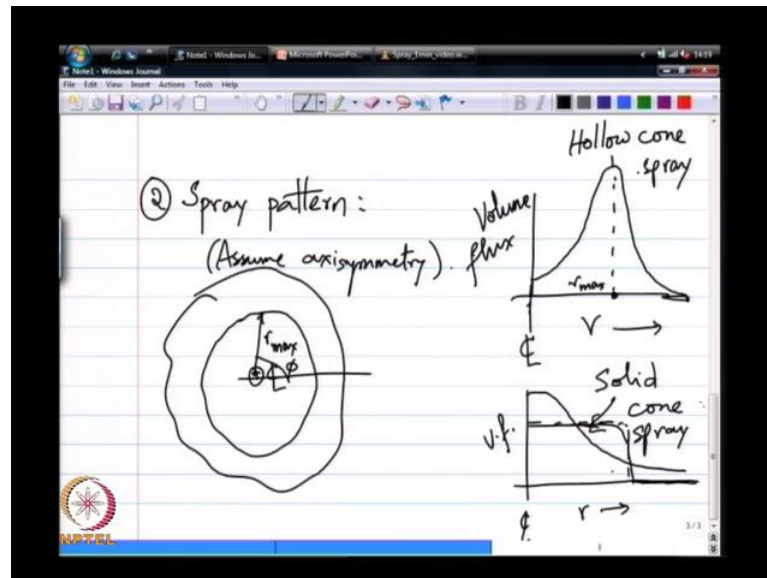 Note1 - Windows Jo...
Microsoft PowerPoi...
Spray_1min_video.w...
14:19
Note1 - Windows Journal
File Edit View Insert Actions Tools Help
B I
② Spray pattern:
(Assume axisymmetry).
rmax
φ
℄
Hollow cone
spray
Volume
flux
rmax
r →
℄
Solid
cone
spray
v.f.
r →
℄
3/3
NPTEL